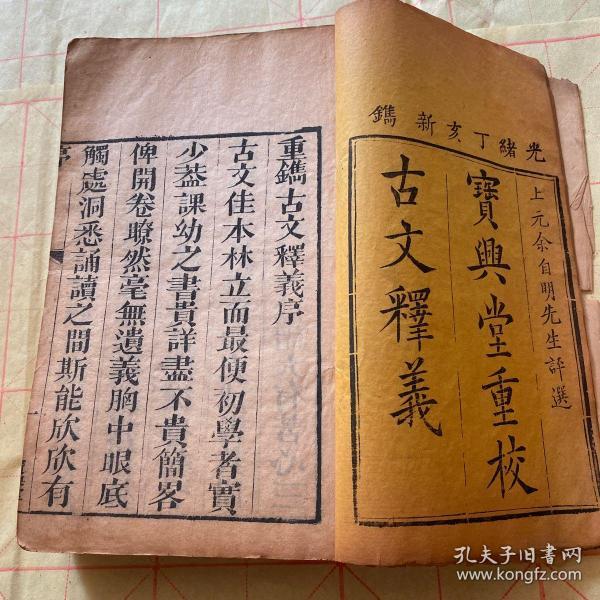 光緒丁亥新鐫
上元余自明先生評選
寶興堂重校
古文釋義
重鐫古文釋義序
古文佳本林立而最便初學者實
少蓋課幼之書貴詳盡不貴簡畧
俾開卷瞭然毫無遺義胸中眼底
觸處洞悉誦讀之間斯能欣欣有
序
一
孔夫子旧书网
www.kongfz.com